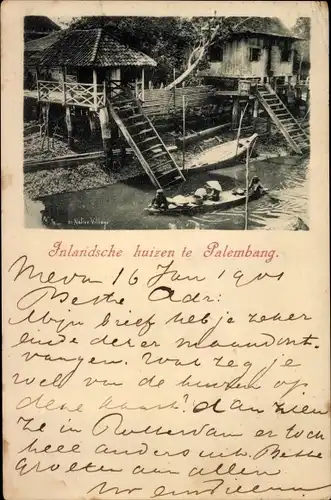 Native Village
Inlandsche huizen te Palembang.
16 Jan 1901
Beste Adr:
Mijn brief heb je zeker
einde dezer maand ont-
vangen. Wat zeg je
wel van de huizen op
deze kaart? dan zien
ze in Rotterdam er toch
heel anders uit. Beste
groeten aan allen